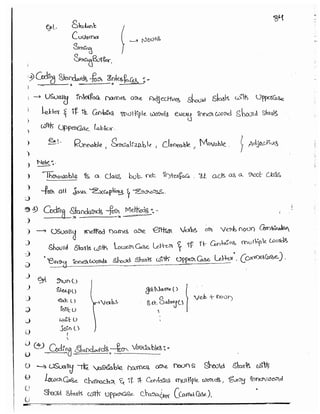 84
Eg1. Student
Customer
String
StringBuffer.
→ Nouns
2) Coding Standards for Interfaces :-
→ Usually interface names are Adjectives should starts with uppercase
letter & if it contains multiple words every innerword should starts
with uppercase letter.
Eg:- Runnable, Serializable, Cloneable, Movable } Adjectives
Note:-
Throwable is a class but not interface. It acts as a root class
for all Java Exceptions & Errors.
3) Coding Standards for Methods:-
→ Usually method names are either verbs or verb noun combination
should starts with Lowercase Letter & if it contains multiple words
Every innerwords should starts with upper case Letter. (camelcase).
Eg
run()
sleep()
eat()
init()
wait()
join()
→ Verbs
getName()
set Salary()
verb + noun
(4) Coding Standards for Variables:-
→ Usually the variable names are nouns should starts with
Lowercase character & if it contains multiple words, Every innerword
should starts with uppercase character (camelcase).